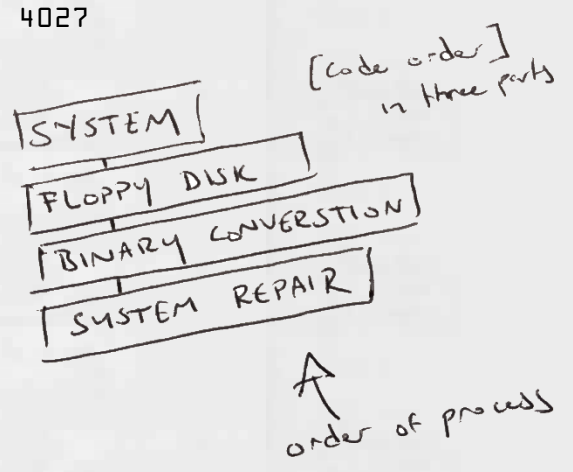 4027
[code order]
in three parts
SYSTEM
FLOPPY DISK
BINARY CONVERSTION
SYSTEM REPAIR
order of process